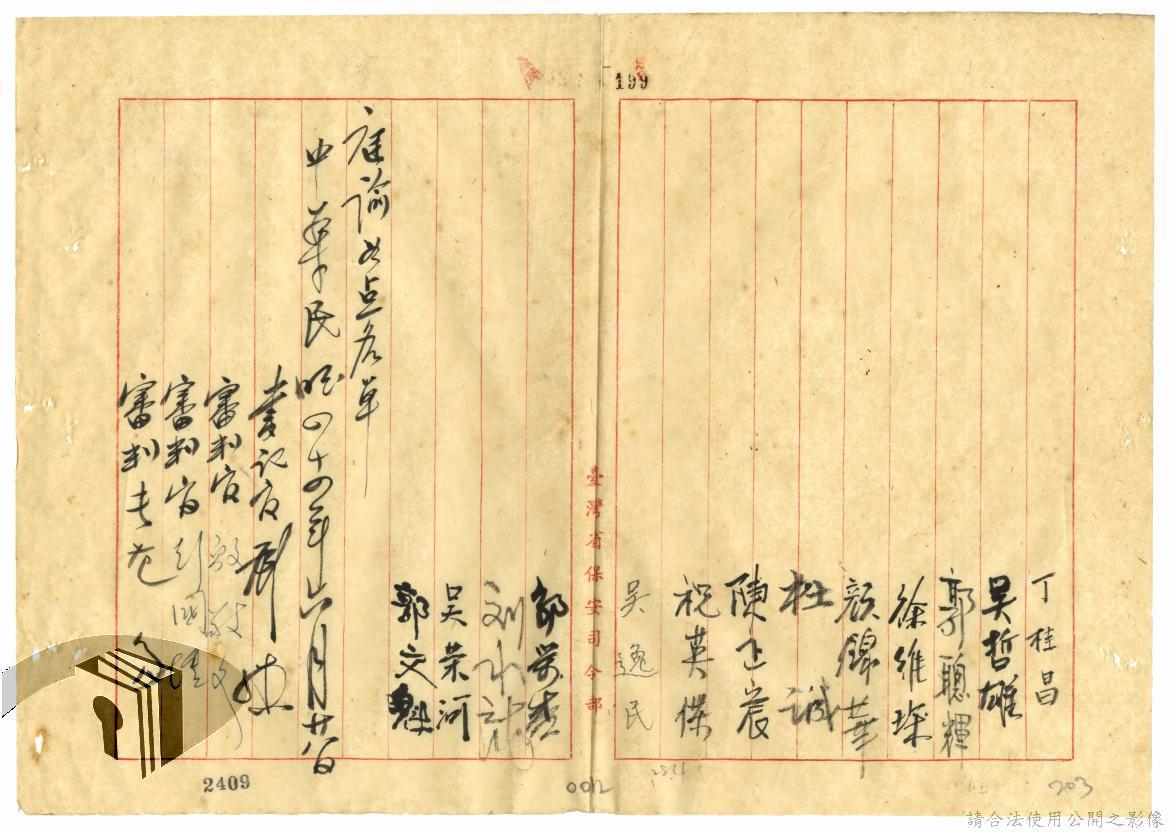 199
丁桂昌
吳哲雄
郭聰輝
徐維琛
顏錦華
杜誠
陳正宸
祝英傑
吳逸民
臺灣省保安司令部
鄒榮
劉水
吳榮河
郭文魁
庭諭如點名單
中華民國四十四年六月廿日
書記官
審判官
審判官 彭國
審判長
2409
002
203
請合法使用公開之影像